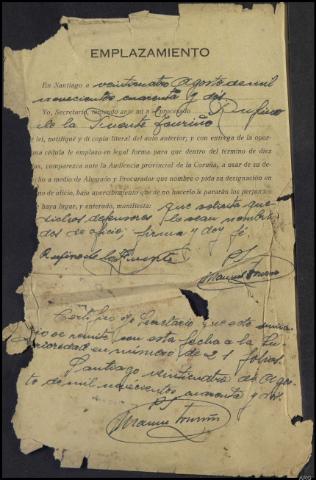 EMPLAZAMIENTO
En Santiago a veinticuatro Agosto de mil
novecientos cuarenta y dos
Yo, Secretario, teniendo ante mi a Rufino
de la Fuente
leí, notifiqué y di copia literal del auto anterior; y con entrega de la opor-
cédula le emplazo en legal forma para que dentro del término de diez
días, comparezca ante la Audiencia provincial de la Coruña, a usar de su de-
recho a medio de Abogado y Procurador que nombre o pida su designación en
turno de oficio, bajo apercibimiento que de no hacerlo le pararán los perjuicios
haya lugar, y enterado, manifiesta: que solicita que
dichos defensores le sean nombra-
dos de oficio, firma y doy fé.
Rufino de la Fuente
Certifico yo Secretario que este sumario
se remite con esta fecha a la Su-
perioridad en número de 21 folios.
Santiago veinticuatro de Agos-
to de mil novecientos cuarenta y dos